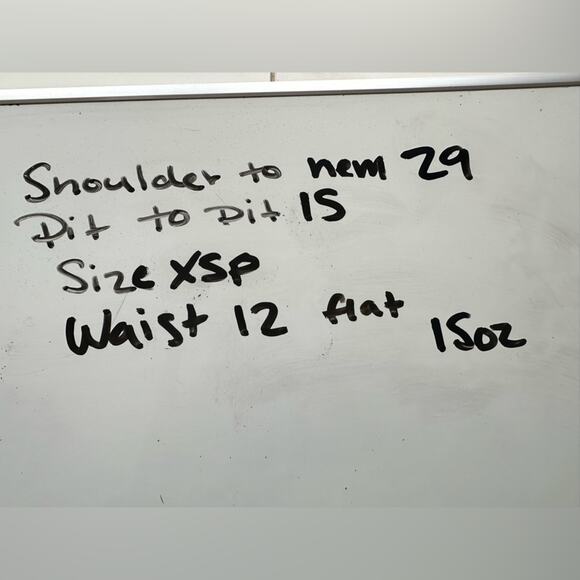 Shoulder to hem 29
Pit to Pit 15
Size XSP
Waist 12 flat
15oz